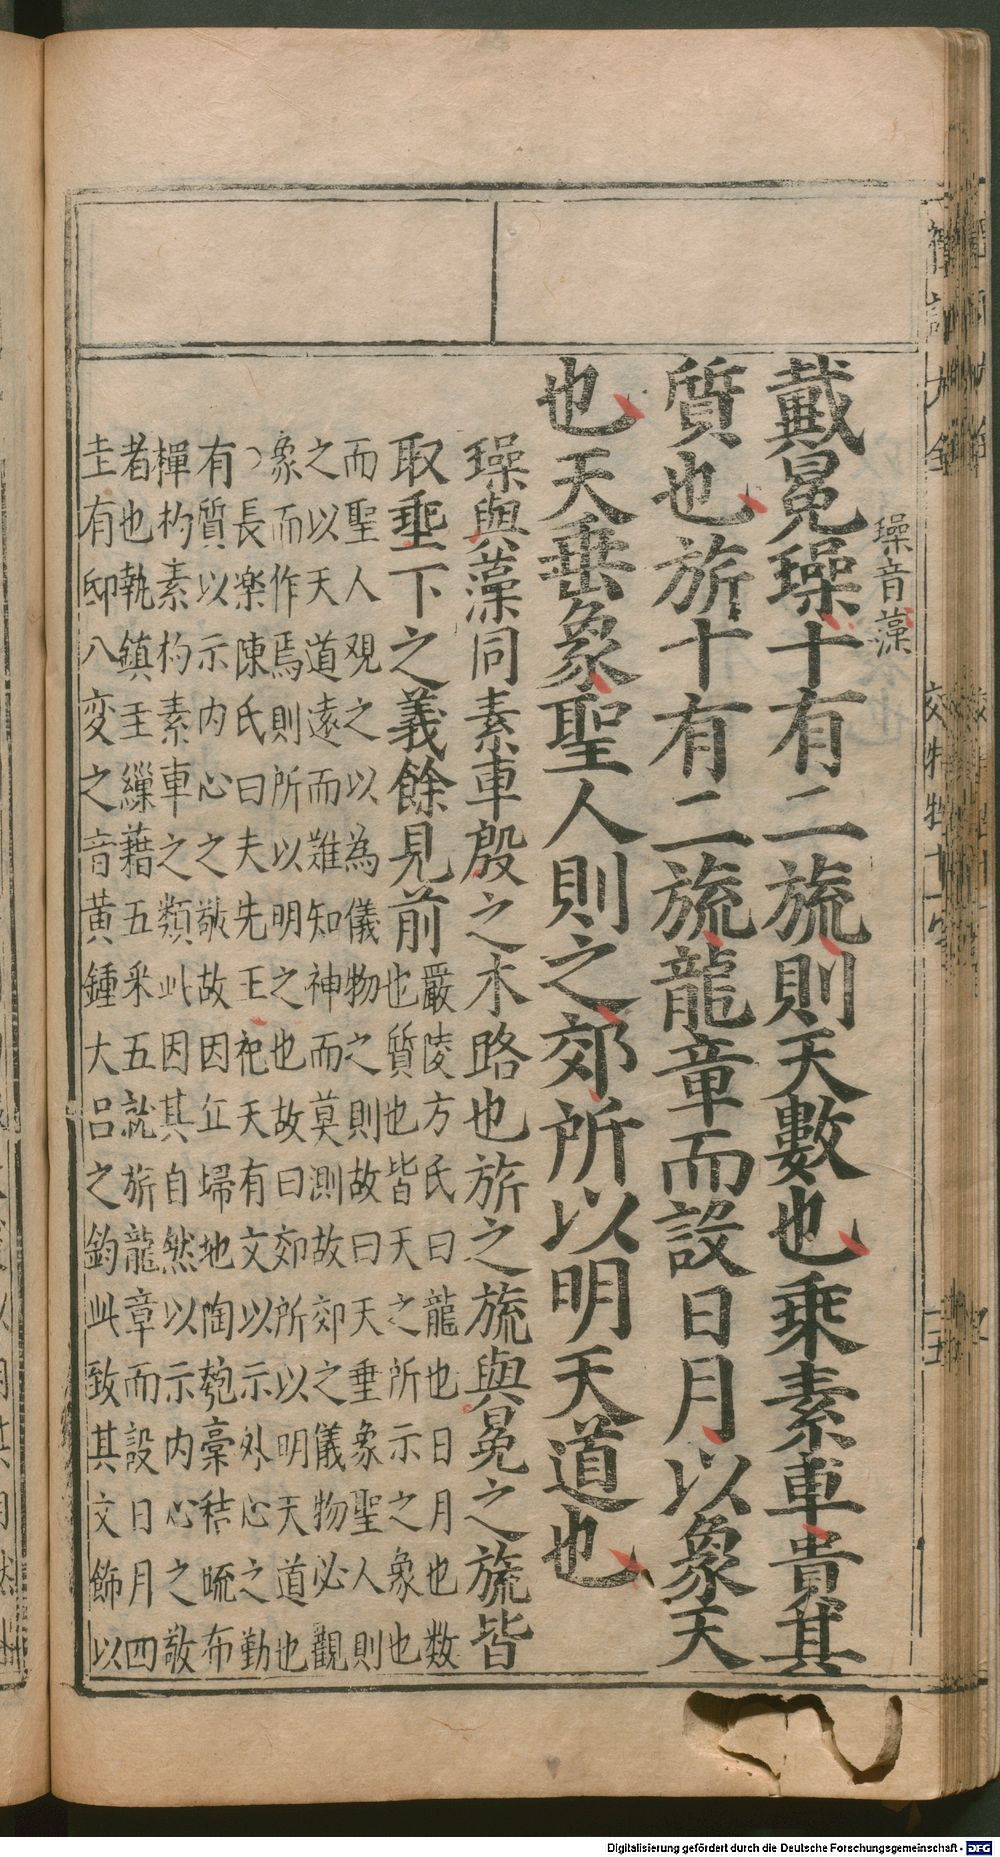 璪音藻
戴冕璪十有二旒則天數也乘素車貴其
質也旂十有二旒龍章而設日月以象天
也天垂象聖人則之郊所以明天道也
璪與藻同素車殷之木路也旂之旒與冕之旒皆
取垂下之義餘見前
嚴陵方氏曰龍也日月也数
也質也皆天之所示之象也
而聖人覌之以為儀物之則故曰天垂象聖人則
之以天道遠而難知神而莫測故郊之儀物必觀
象而作焉則所以明之也故曰郊所以明天道也
長楽陳氏曰夫先王祀天有文以示外心之勤
有質以示内心之敬故因丘埽地陶匏稾秸䟽布
樿杓素杓素車之類此因其自然以示内心之敬
者也執鎮圭繅藉五采五就旂龍章而設日月四
圭有邸八变之音黃鍾大呂之鈞此致其文飾以
Digitalisierung gefördert durch die Deutsche Forschungsgemeinschaft - DFG